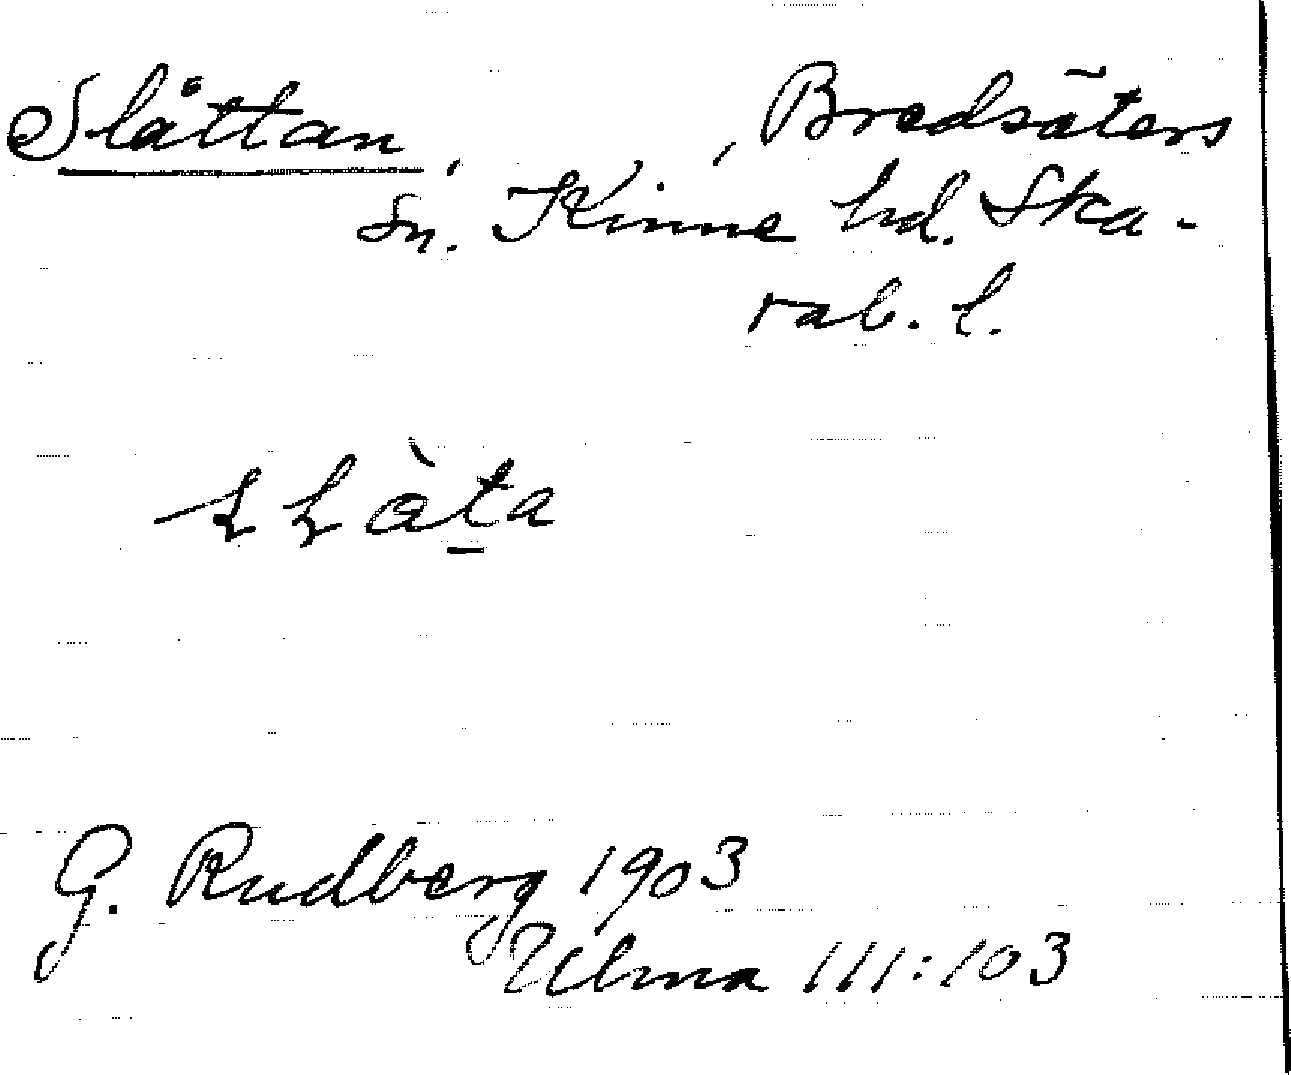 Slåttan, , Bredsäters
sn. Kinne hd. Ska-
rab. l.
G. Rudberg 1903
Ulma 111:103